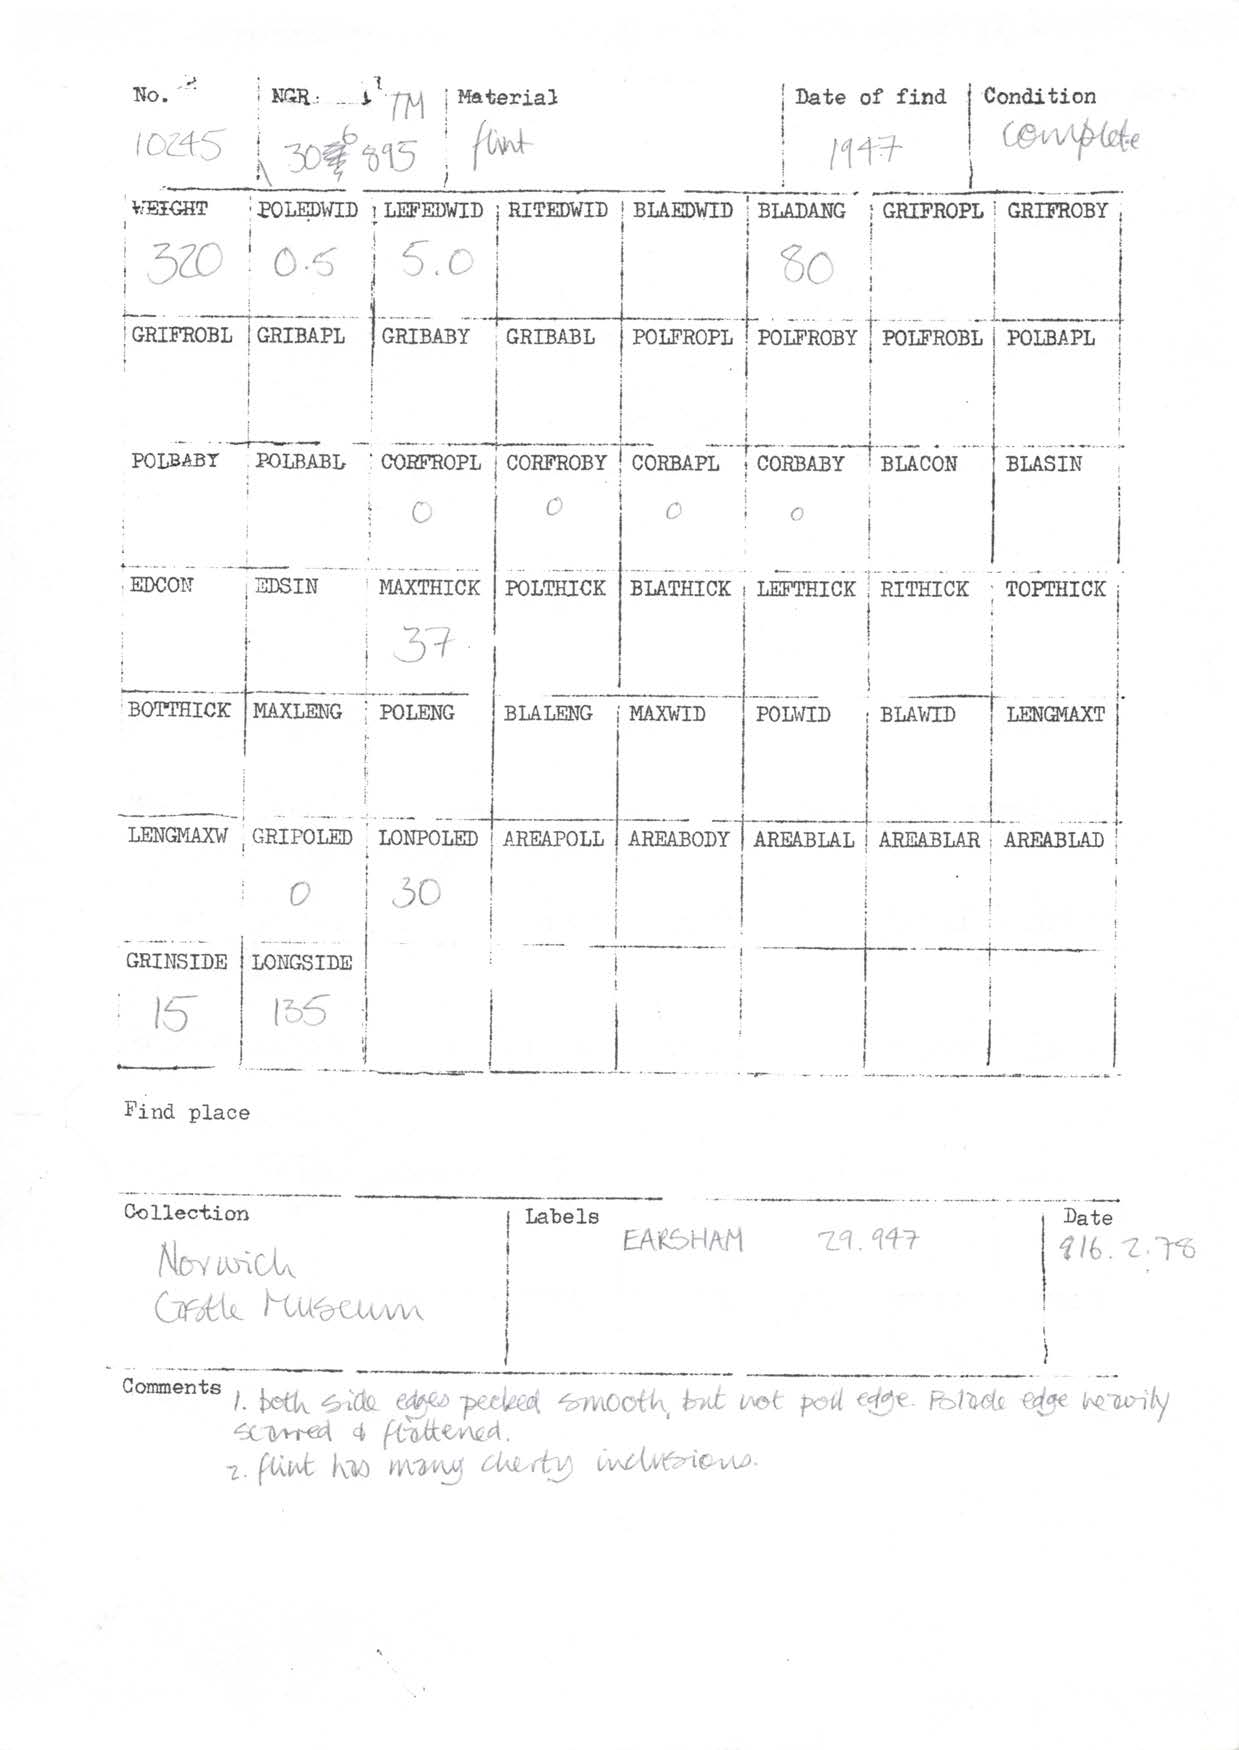 No. NGR: TM Material Date of find Condition
10245 306 895 flint 1947 complete
WEIGHT POLEDWID LEFEDWID RITEDWID BLAEDWID BLADANG GRIFROPL GRIFROBY
320 0.5 5.0 80
GRIFROBL GRIBAPL GRIBABY GRIBABL POLFROPL POLFROBY POLFROBL POLBAPL
POLBABY POLBABL CORFROPL CORFROBY CORBAPL CORBABY BLACON BLASIN
0 0 0 0
EDCON EDSIN MAXTHICK POLTHICK BLATHICK LEFTHICK RITHICK TOPTHICK
37
BOTTHICK MAXLENG POLENG BLALENG MAXWID POLWID BLAWID LENGMAXT
LENGMAXW GRIPOLED LONPOLED AREAPOLL AREABODY AREABLAL AREABLAR AREABLAD
0 30
GRINSIDE LONGSIDE
15 135
Find place
Collection Labels Date
EARSHAM 29.947 16.2.78
Norwich
Castle Museum
Comments 1. both side edges pecked smooth, but not poll edge. Blade edge heavily
scarred & flattened.
2. flint has many cherty inclusions.